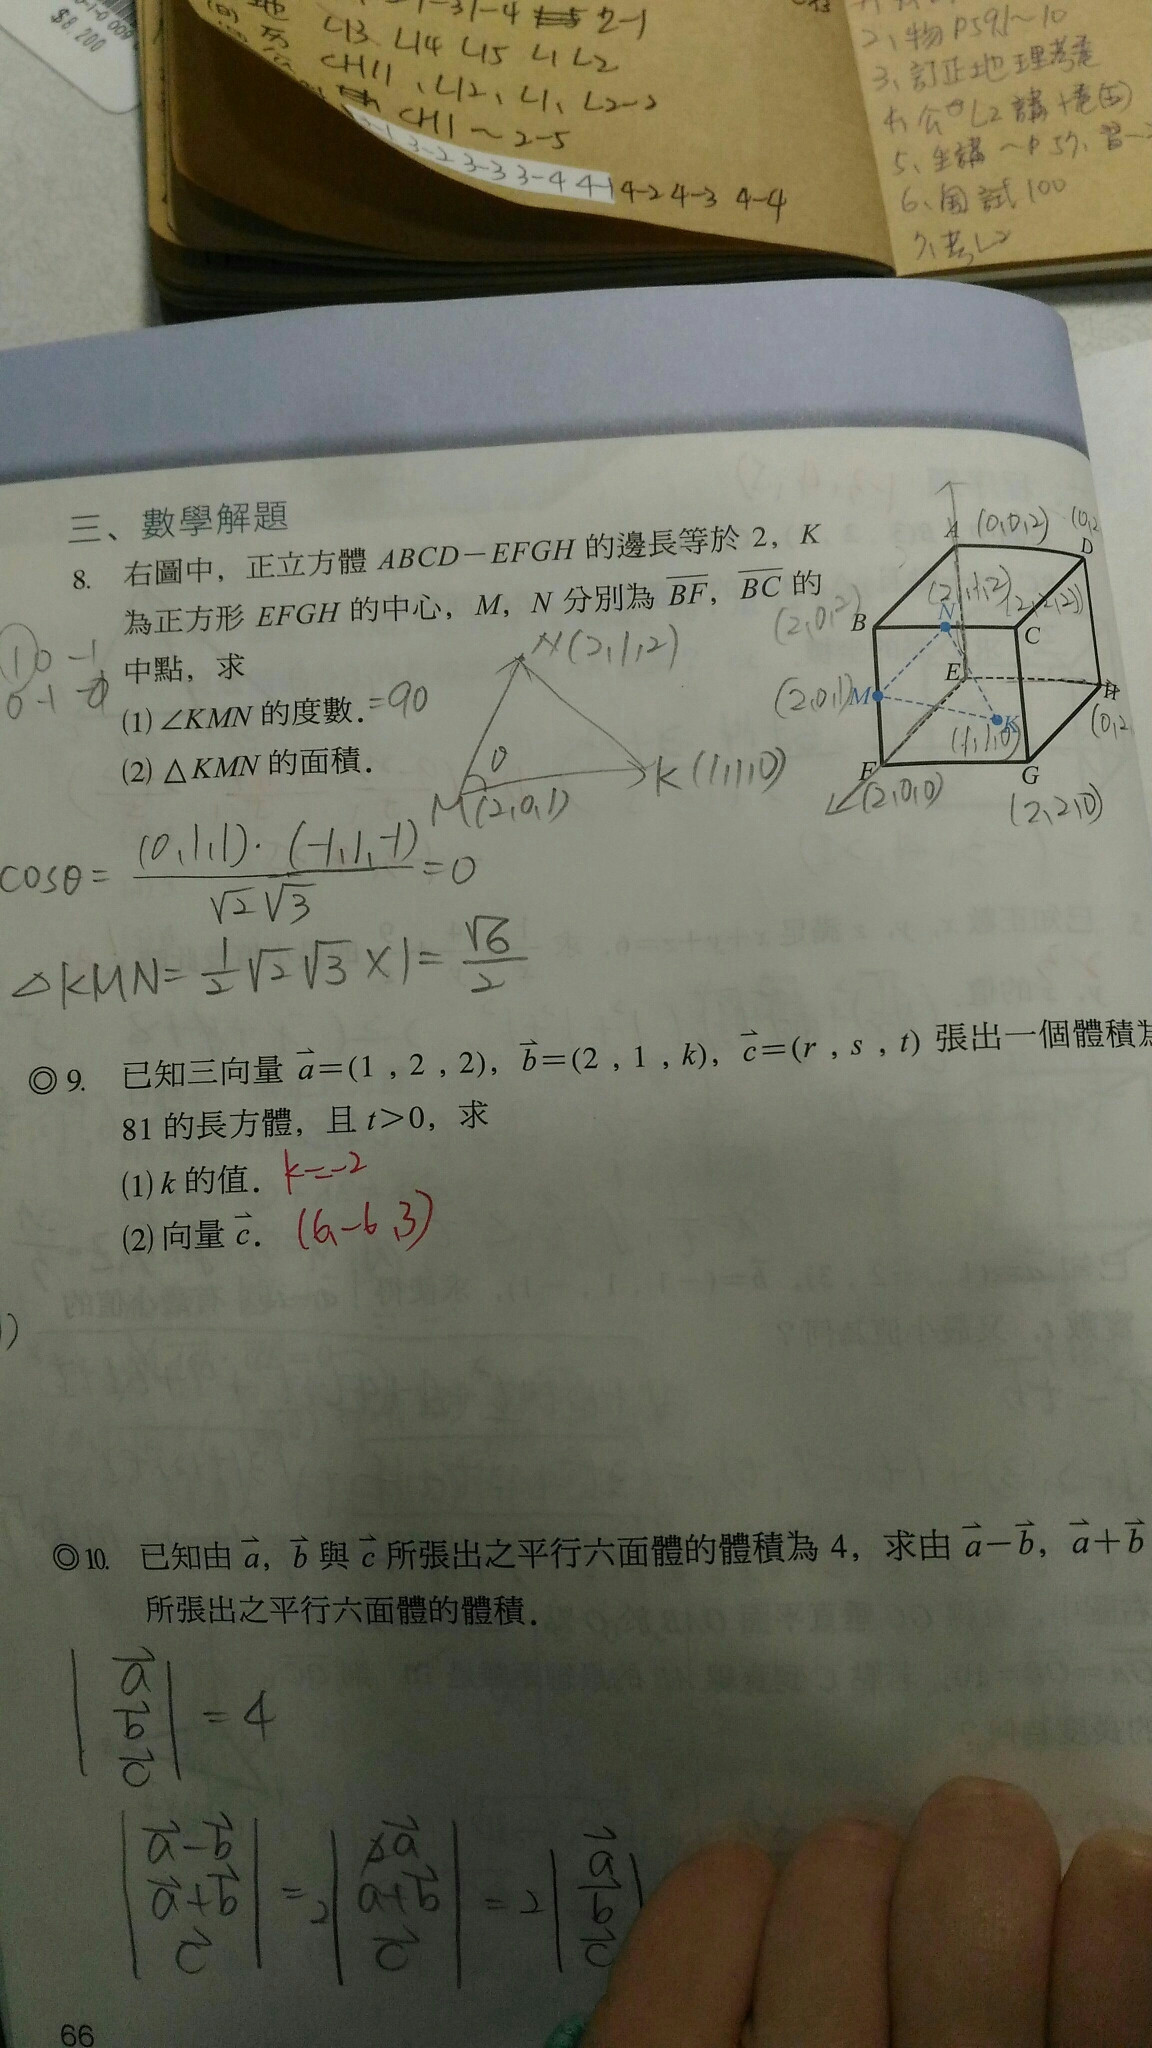 $8,200
2-1
L13 L14 L15 L1 L2
CH11、L12、L1、L2-2
CH1~2-5
3-2 3-3 3-4 4-1 4-2 4-3 4-4
2、物P59,1~10
3、訂正地理考卷
5、生講~P57、習
6、國試100
7、考L2
三、數學解題
8. 右圖中，正立方體 ABCD－EFGH 的邊長等於 2，K
為正方形 EFGH 的中心，M，N 分別為 BF，BC 的
中點，求
(1) ∠KMN 的度數. =90
(2) △KMN 的面積.
1 0 -1
0 -1
N(2,1,2)
θ
M(2,0,1)
K(1,1,0)
A (0,0,2) (0,2
D
(2,1,2) (2,2,2)
(2,0,2) B N C
(2,0,1) M E H
(1,1,0) K (0,2
F G
(2,0,0) (2,2,0)
cosθ = (0,1,1)·(-1,1,-1) / √2√3 = 0
△KMN = 1/2 √2√3 × 1 = √6/2
◎9. 已知三向量 a⃗=(1，2，2)，b⃗=(2，1，k)，c⃗=(r，s，t) 張出一個體積為
81 的長方體，且 t>0，求
(1) k 的值. k=-2
(2) 向量 c⃗. (6,-6,3)
◎10. 已知由 a⃗，b⃗ 與 c⃗ 所張出之平行六面體的體積為 4，求由 a⃗−b⃗，a⃗+b⃗
所張出之平行六面體的體積.
|a⃗ b⃗ c⃗| = 4
|a⃗-b⃗ a⃗+b⃗ c⃗| = 2|a⃗ a+b⃗ c⃗| = 2|a⃗ b⃗ c⃗|
66